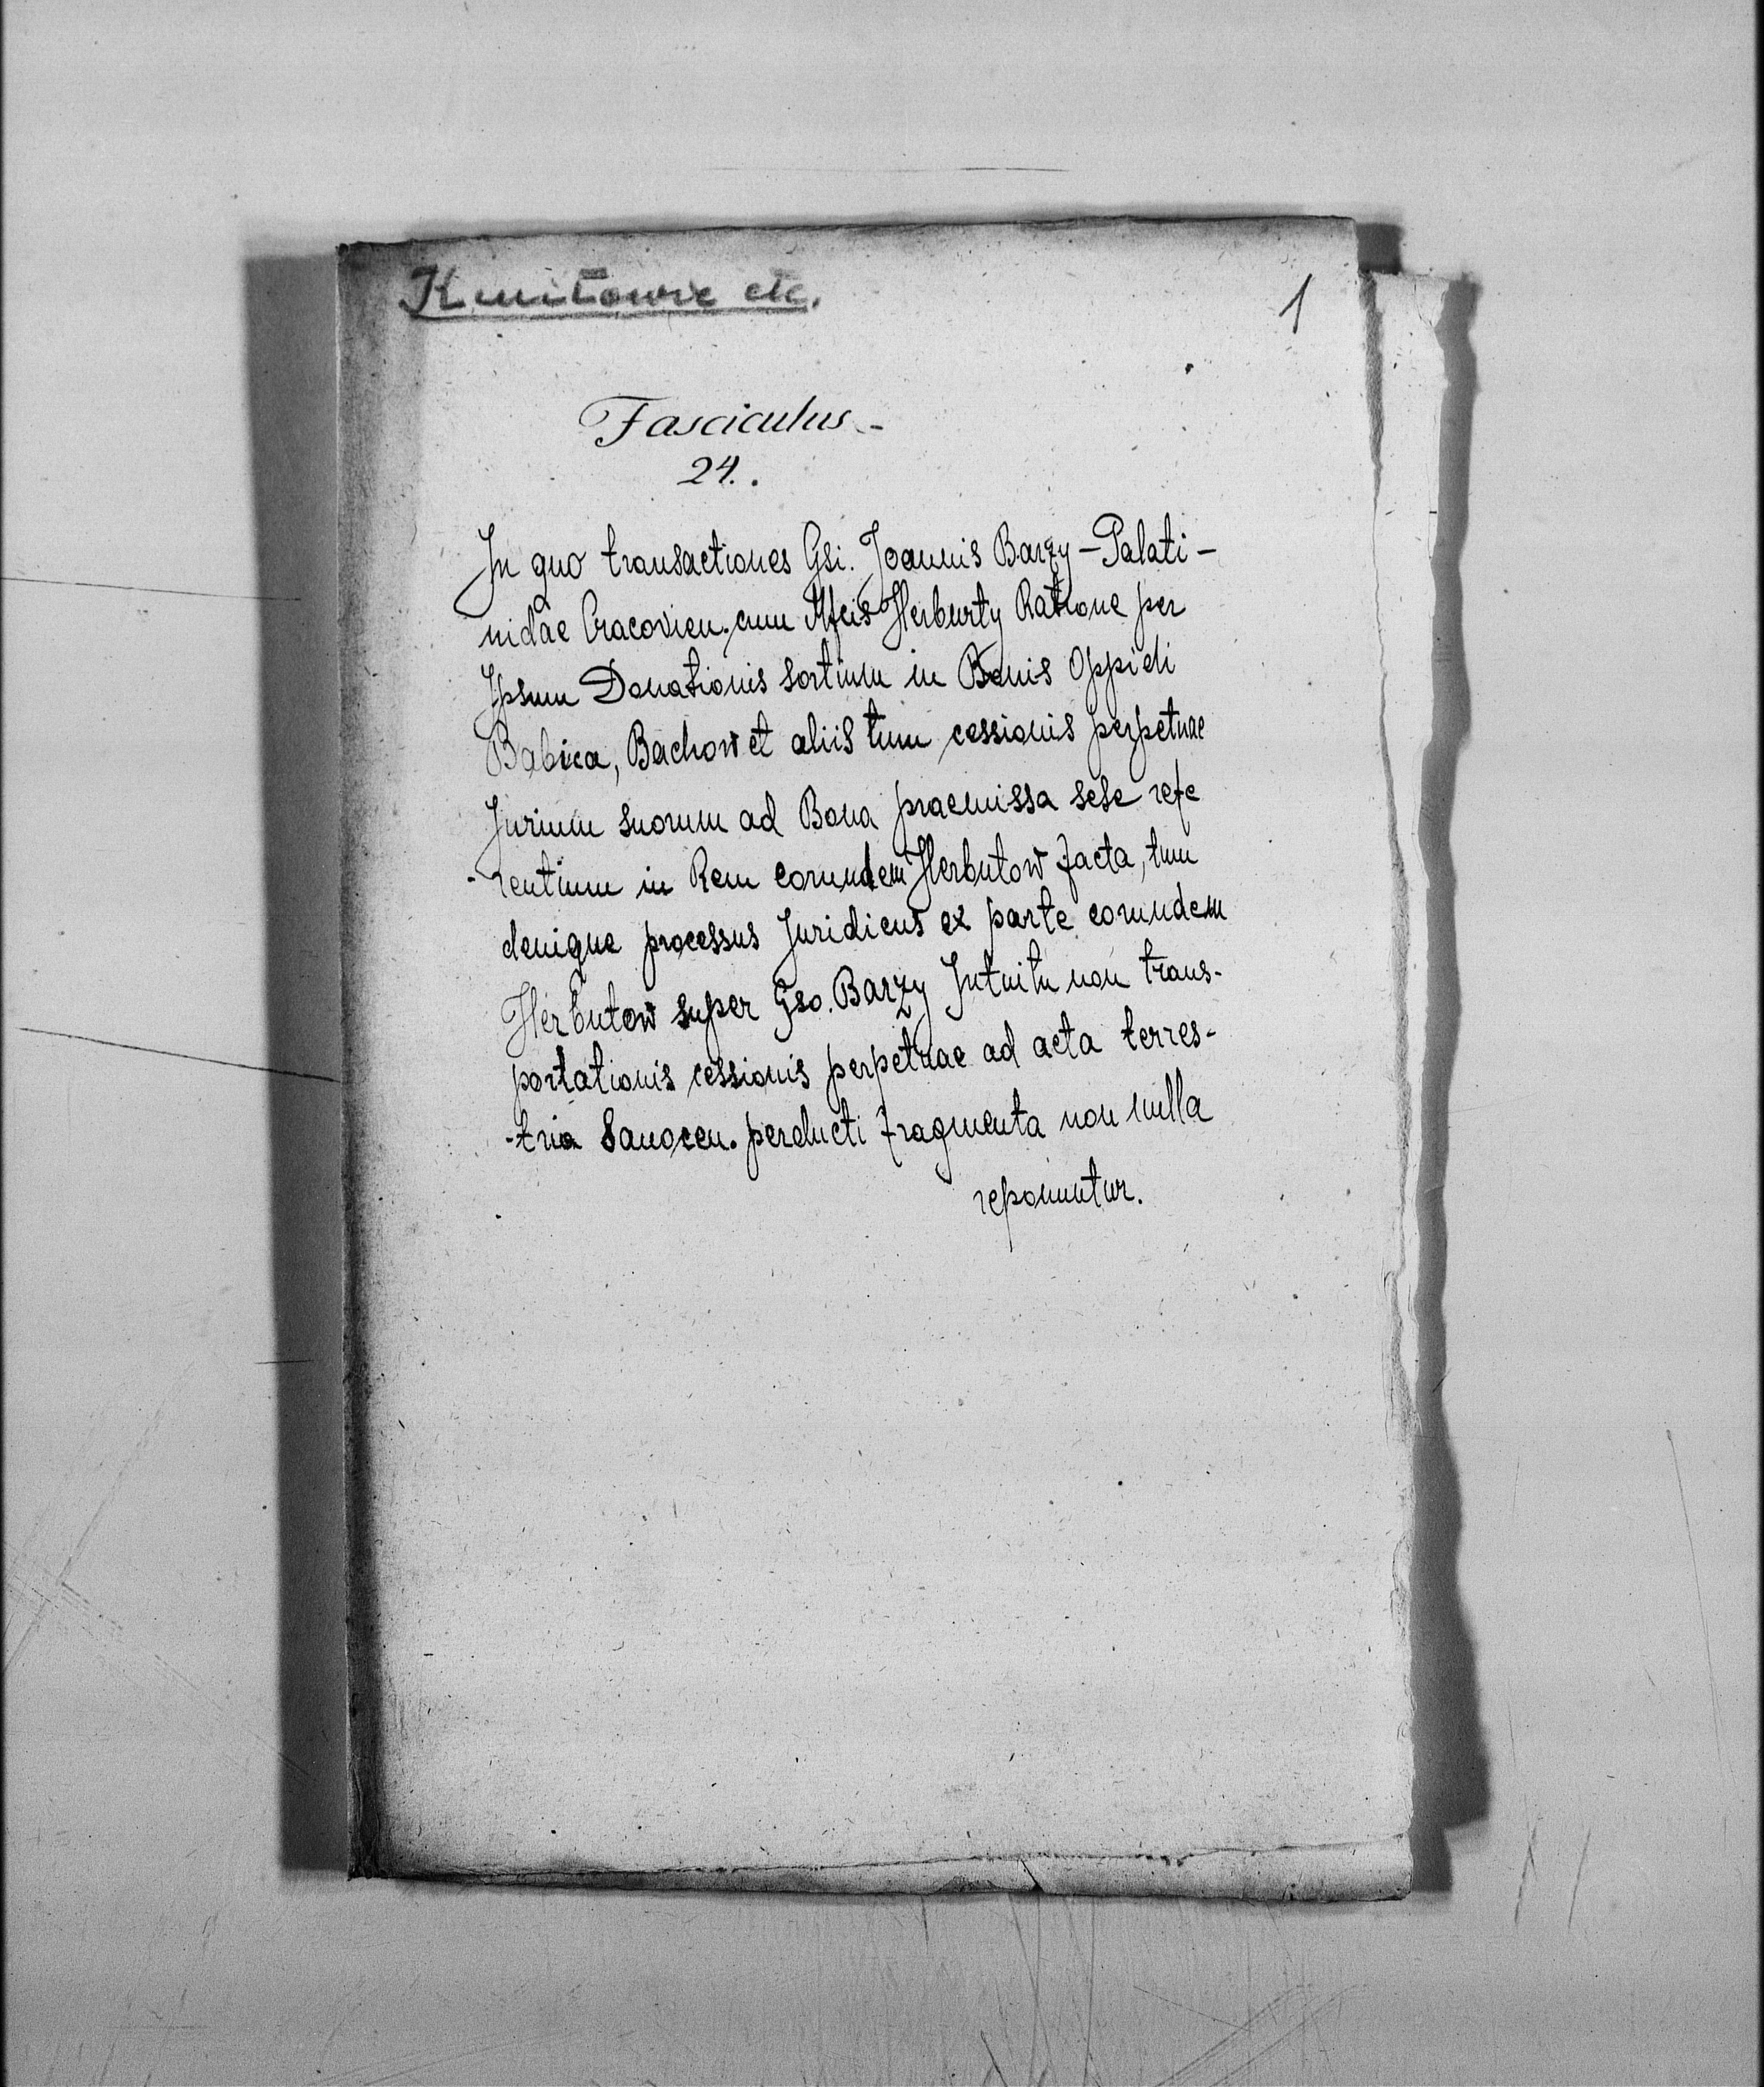 Kmitowie etc.
1
Fasciculus -
24.
In quo transactiones Gsi. Joannis Barzy - Palati -
nidae Cracovien. cum Mfcis Herburty Ratione per
Ipsum Donationis sortium in Bonis Oppidi
Babica, Bachow et aliis tum cessionis perpetuae
Jurium suorum ad Bona praemissa sese refe
- rentium in Rem eorumdem Herbutow facta, tum
denique processus Juridicus ex parte eorumdem
Herbutow super Gso. Barzy Intuitu non trans-
portationis cessionis perpetuae ad acta terres-
-tria Sanocen. perducti fragmenta non nulla
reponuntur.